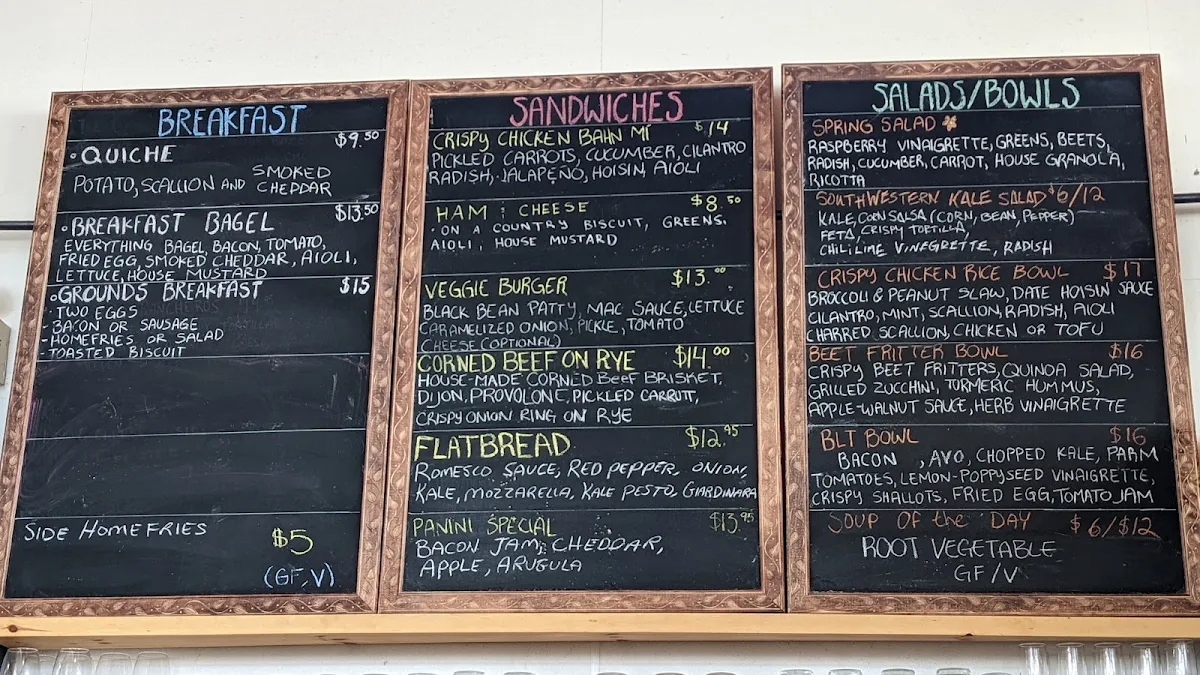 BREAKFAST
• QUICHE $9.50
POTATO, SCALLION AND SMOKED CHEDDAR
• BREAKFAST BAGEL $13.50
EVERYTHING BAGEL BACON, TOMATO,
FRIED EGG, SMOKED CHEDDAR, AIOLI,
LETTUCE, HOUSE MUSTARD
• GROUNDS BREAKFAST $15
- TWO EGGS
- BACON OR SAUSAGE
- HOMEFRIES OR SALAD
- TOASTED BISCUIT
SIDE HOMEFRIES
$5
(GF, V)
SANDWICHES
CRISPY CHICKEN BAHN MI $14
PICKLED CARROTS, CUCUMBER, CILANTRO
RADISH, JALAPEÑO, HOISIN, AIOLI
HAM & CHEESE $8.50
• ON A COUNTRY BISCUIT, GREENS,
AIOLI, HOUSE MUSTARD
VEGGIE BURGER $13.00
BLACK BEAN PATTY, MAC SAUCE, LETTUCE
CARAMELIZED ONION, PICKLE, TOMATO
(CHEESE OPTIONAL)
CORNED BEEF ON RYE $14.00
HOUSE-MADE CORNED BEEF BRISKET,
DIJON, PROVOLONE, PICKLED CARROT,
CRISPY ONION RING ON RYE
FLATBREAD $12.95
ROMESCO SAUCE, RED PEPPER, ONION,
KALE, MOZZARELLA, KALE PESTO, GIARDINARA
PANINI SPECIAL $13.95
BACON JAM, CHEDDAR,
APPLE, ARUGULA
SALADS/BOWLS
SPRING SALAD
RASPBERRY VINAIGRETTE, GREENS, BEETS,
RADISH, CUCUMBER, CARROT, HOUSE GRANOLA,
RICOTTA
SOUTHWESTERN KALE SALAD $6/12
KALE, CORN SALSA (CORN, BEAN, PEPPER)
FETA, CRISPY TORTILLA,
CHILI LIME VINEGRETTE, RADISH
CRISPY CHICKEN RICE BOWL $17
BROCCOLI & PEANUT SLAW, DATE HOISIN SAUCE
CILANTRO, MINT, SCALLION, RADISH, AIOLI
CHARRED SCALLION, CHICKEN OR TOFU
BEET FRITTER BOWL $16
CRISPY BEET FRITTERS, QUINOA SALAD,
GRILLED ZUCCHINI, TURMERIC HUMMUS,
APPLE-WALNUT SAUCE, HERB VINAIGRETTE
BLT BOWL $16
BACON , AVO, CHOPPED KALE, PARM
TOMATOES, LEMON-POPPYSEED VINAIGRETTE,
CRISPY SHALLOTS, FRIED EGG, TOMATO JAM
SOUP OF the DAY $6/$12
ROOT VEGETABLE
GF/V